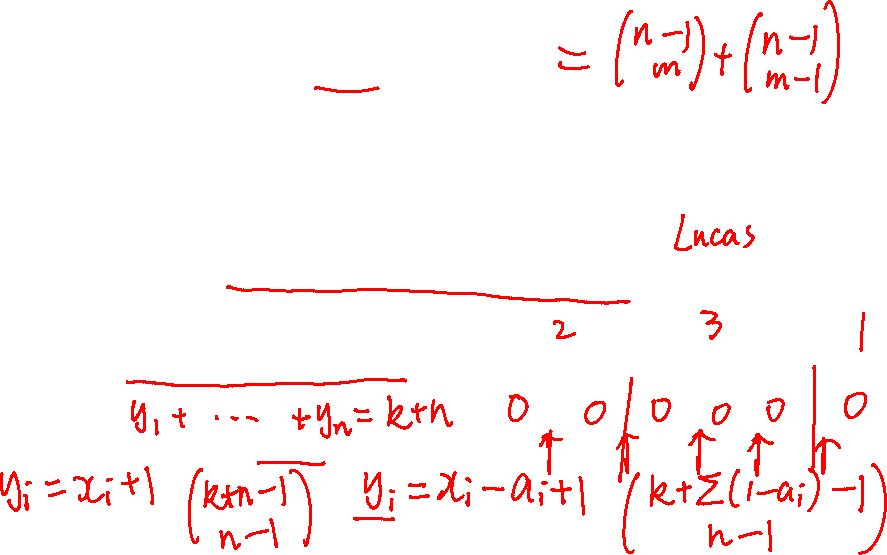 = \binom{n-1}{m} + \binom{n-1}{m-1}
Lucas
2 3 1
y_1 + ⋯ + y_n = k+n 0 0 | 0 0 0 | 0
y_i = x_i + 1 \binom{k+n-1}{n-1} y_i = x_i - a_i + 1 \binom{k+Σ(1-a_i)-1}{n-1}